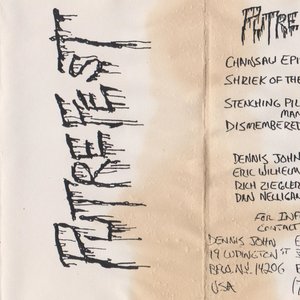 PUTREFEST
PUTRE
CHAINSAW EPI
SHRIEK OF THE
STENCHING PIL
MAN
DISMEMBERED
DENNIS JOHN
ERIC WILHELM
RICH ZIEGLER
DAN NELLIGAN
FOR INF
CONTACT
DENNIS JOHN
19 LUDINGTON ST
BFLO. N.Y. 14206
USA